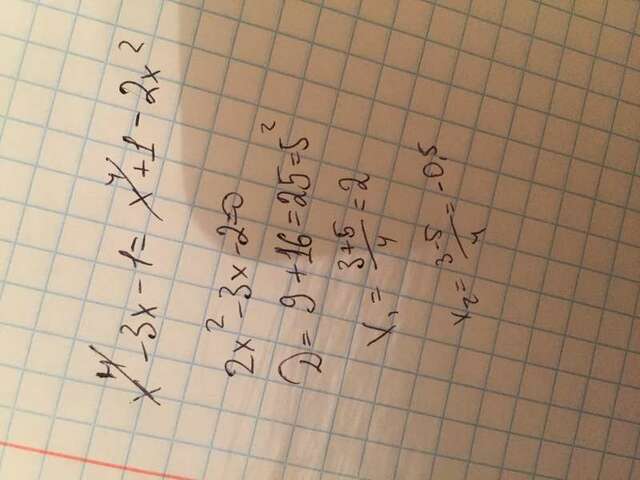 x⁴ - 3x - 1 = x⁴ + 1 - 2x²
2x² - 3x - 2 = 0
D = 9 + 16 = 25 = 5²
x₁ = (3+5)/4 = 2
x₂ = (3-5)/4 = -0,5